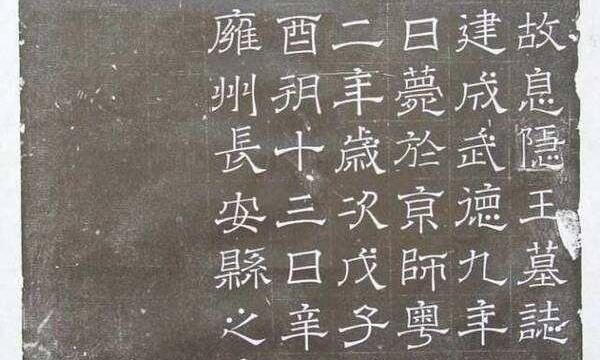 故息隱王墓誌
建成武德九年
日薨於京師粵
二年歲次戊子
酉朔十三日辛
雍州長安縣之